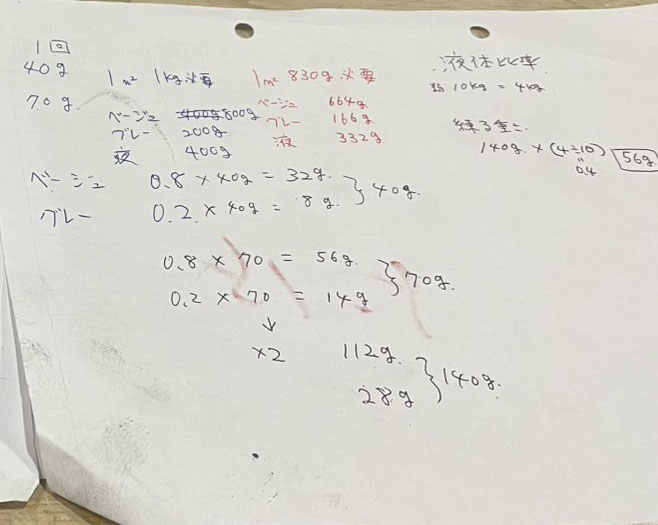 1回
40g
70g
1m² 1kg必要
ベージュ 400g 800g
グレー 200g
液 400g
1m² 830g必要
ベージュ 664g
グレー 166g
液 332g
液体比率
10kg = 4kg
練る重さ
140g × (4÷10)
" 
0.4
56g
ベージュ 0.8 × 40g = 32g
グレー 0.2 × 40g = 8g
} 40g.
0.8 × 70 = 56g.
0.2 × 70 = 14g
} 70g.
↓
×2 112g.
28g
} 140g.